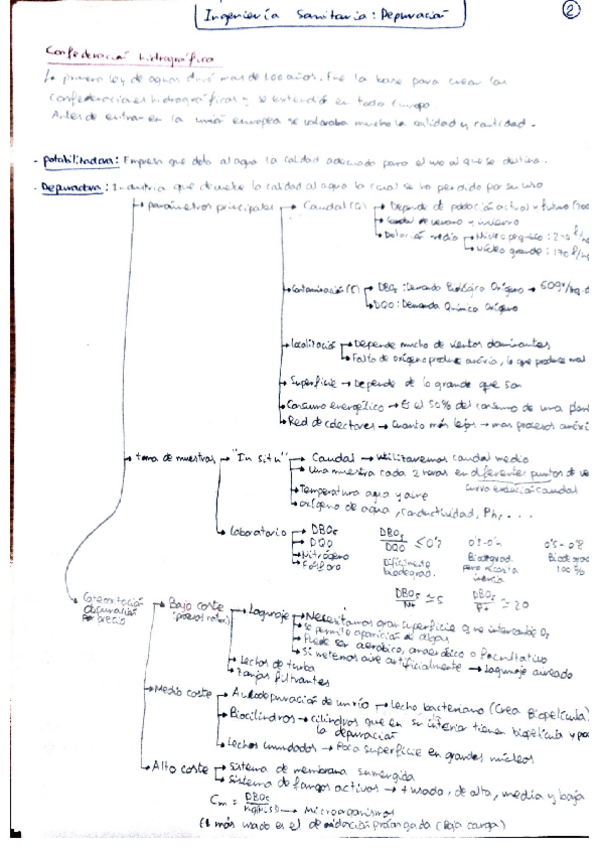 Ingeniería Sanitaria: Depuración
2
Confederación hidrográfica
La primera ley de aguas duró mas de 100 años. Fue la base para crear las
confederaciones hidrográficas y se extendió en toda Europa.
Antes de entrar en la unión europea se valoraba mucho la calidad y cantidad.
- Potabilizadora: Empresa que dota al agua la calidad adecuada para el uso al que se destina.
- Depuradora: Industria que devuelve la calidad al agua la cual se ha perdido por su uso
→ parámetros principales → Caudal (Q) → Depende de población actual y futura
→ Caudal de verano y invierno
→ Dotación media → Núcleo pequeño:
→ Núcleo grande: 170 l/
→ Contaminación (C) → DBO5: Demanda Biológica Oxígeno → 60gr/
→ DQO: Demanda Química Oxígeno
→ Localización → Depende mucho de vientos dominantes
→ Falta de oxígeno produce anóxia, lo que produce mal
→ Superficie → Depende de lo grande que son
→ Consumo energético → Es el 50% del consumo de una
→ Red de colectores → Cuanto más lejos → mas procesos
→ toma de muestras → "In situ" → Caudal → Utilizaremos caudal medio
→ Una muestra cada 2 horas en diferentes puntos de
curva evolución caudal
→ Temperatura agua y aire
→ oxígeno de agua, conductividad, Ph, ...
→ Laboratorio → DBO5
→ DQO
→ Nitrógeno
→ Fósforo
DBO5/DQO ≤ 0'2
Difícilmente
biodegrad.
Biodegrad.
pero necesita
inercia
0'5-0'8
100%
DBO5/Nt ≃ 5
DBO5/Pt ≃ 20
→ Caracterización
depuración
por precio
→ Bajo coste → Lagunaje → Necesitamos gran superficie q se intercambie O2
→ Se permite aparición de algas
→ Puede ser aeróbico, anaeróbico o facultativo
→ Si metemos aire artificialmente → Lagunaje aireado
→ Lechos de turba
→ Zanjas filtrantes
→ Medio coste → Autodepuración de un río → Lecho bacteriano (Crea Biopelícula)
→ Biocilindros → cilindros que en su interior tienen biopelícula y
la depuración
→ Lechos inundados → Poca superficie en grandes núcleos
→ Alto coste → Sistema de membrana sumergida
→ Sistema de fangos activos → + usado, de alta, media y baja
Cm = DBO5 → Microorganismos
(El más usado es el de oxidación prolongada (Baja carga)